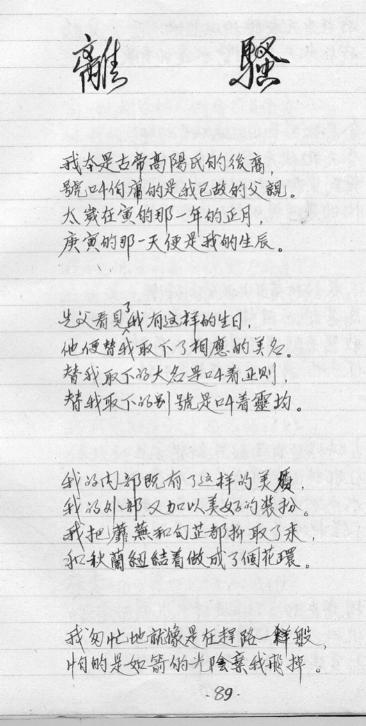 離騷
我本是古帝高陽氏的後裔,
號叫伯庸的是我已故的父親。
太歲在寅的那一年的正月,
庚寅的那一天便是我的生辰。
先父看見了我有这样的生日,
他便替我取下了相應的美名。
替我取下的大名是叫着正则,
替我取下的别號是叫着靈均。
我的内部既有了这样的美质,
我的外部又加以美好的裝扮。
我把蘼蕪和白芷都折取了来,
和秋蘭紐結着做成了個花環。
我匆忙地就像是在趕路一样般,
怕的是如箭的光陰棄我飛掉。
·89·